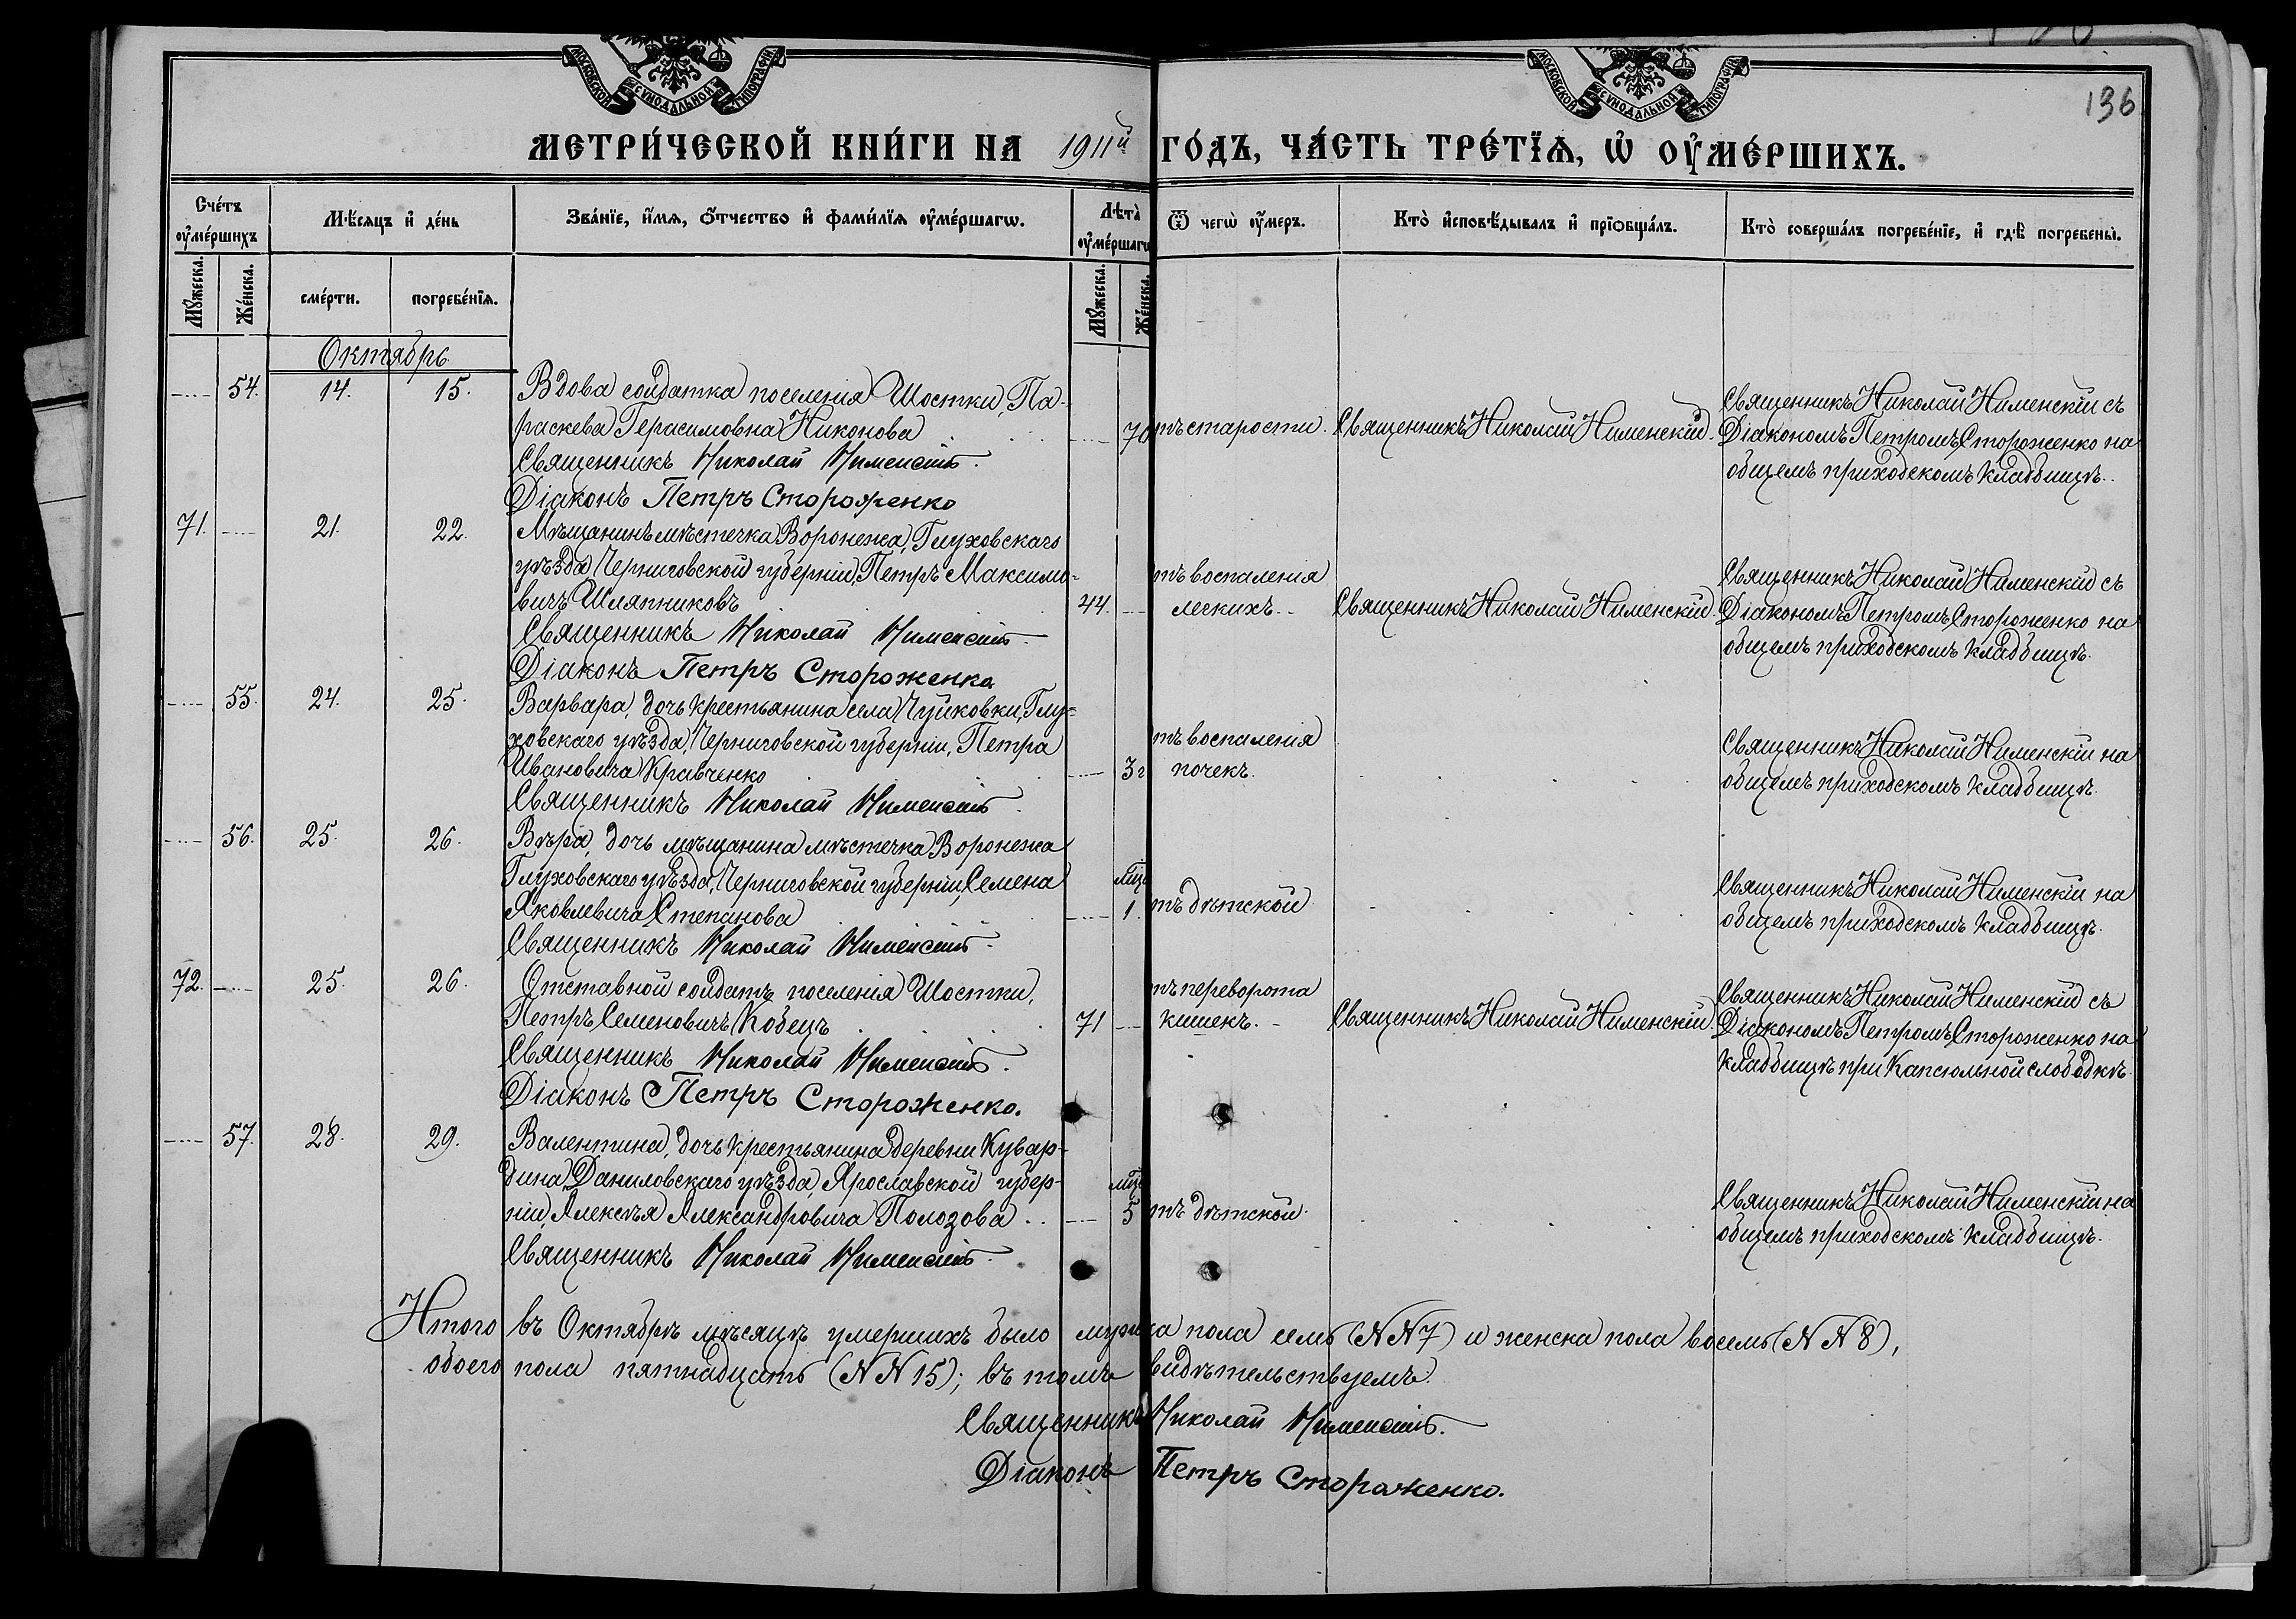 МОСКОВСКОЙ СУНОДАЛЬНОЙ ТИПОГРАФІИ
МОСКОВСКОЙ СУНОДАЛЬНОЙ ТИПОГРАФІИ
136
МЕТРИ́ЧЕСКОЙ КНИ́ГИ НА 1911й ГО́ДЪ, ЧА́СТЬ ТРЕ́ТЇѦ, Ѡ҆ ОУ҆МЕ́РШИХЪ.
Сче́тъ оу҆ме́ршихъ
Мѣ́сѧцъ и҆ де́нь
Зва́нїе, и҆́мѧ, ѻ҆́тчество и҆ фами́лїѧ оу҆ме́ршагѡ.
Лѣта̀ оу҆ме́ршагѡ
Ѿ чегѡ̀ оу҆́меръ.
Кто̀ и҆сповѣ́дывалъ и҆ прїѻбща́лъ.
Кто̀ соверша́лъ погребе́нїе, и҆ гдѣ̀ погребены̀.
Мꙋ́жеска.
Же́нска.
сме́рти.
погребе́нїѧ.
Мꙋ́жеска.
Же́нска.
Октябрь.
54. 14. 15. Вдова солдатка поселенія Шостки, Па-
раскева Герасимовна Никонова 70
Священникъ Николай Нименскій.
Діаконъ Петръ Стороженко
тъ старости. Священникъ Николай Нименскій.
Священникъ Николай Нименскій съ
Діакономъ Петромъ Стороженко на
общемъ приходскомъ кладбищѣ.
71. 21. 22. Мѣщанинъ мѣстечка Воронежа, Глуховскаго
уѣзда, Черниговской губерніи, Петръ Максимо-
вичъ Шляпниковъ 44.
Священникъ Николай Нименскій.
Діаконъ Петръ Стороженко
тъ воспаленія
легкихъ. Священникъ Николай Нименскій.
Священникъ Николай Нименскій съ
Діакономъ Петромъ Стороженко на
общемъ приходскомъ кладбищѣ.
55. 24. 25. Варвара, дочь крестьянина села Чуйковки, Глу-
ховскаго уѣзда, Черниговской губерніи, Петра
Ивановича Кравченко 3г
Священникъ Николай Нименскій.
тъ воспаленія
почекъ.
Священникъ Николай Нименскій на
общемъ приходскомъ кладбищѣ.
56. 25. 26. Вѣра, дочь мѣщанина мѣстечка Воронежа
Глуховскаго уѣзда, Черниговской губерніи, Семена
Яковлевича Степанова 1.
Священникъ Николай Нименскій.
тъ дѣтской
Священникъ Николай Нименскій на
общемъ приходскомъ кладбищѣ.
72. 25. 26. Отставной солдатъ поселенія Шостки,
Петръ Семеновичъ Кобецъ 71
Священникъ Николай Нименскій.
Діаконъ Петръ Стороженко.
тъ переворота
кишекъ. Священникъ Николай Нименскій.
Священникъ Николай Нименскій съ
Діакономъ Петромъ Стороженко на
кладбищѣ при Капсюльной слободкѣ.
57. 28. 29. Валентина, дочь крестьянина деревни Кувар-
дина, Даниловскаго уѣзда, Ярославской губер-
ніи, Алексѣя Александровича Полозова 5
Священникъ Николай Нименскій.
тъ дѣтской.
Священникъ Николай Нименскій на
общемъ приходскомъ кладбищѣ.
Итого въ Октябрѣ мѣсяцѣ умершихъ было мужска пола семь (NN 7) и женска пола восемь (NN 8),
обоего пола пятнадцать (NN 15); въ томъ видѣтельствуемъ.
Священникъ Николай Нименскій.
Діаконъ Петръ Стороженко.